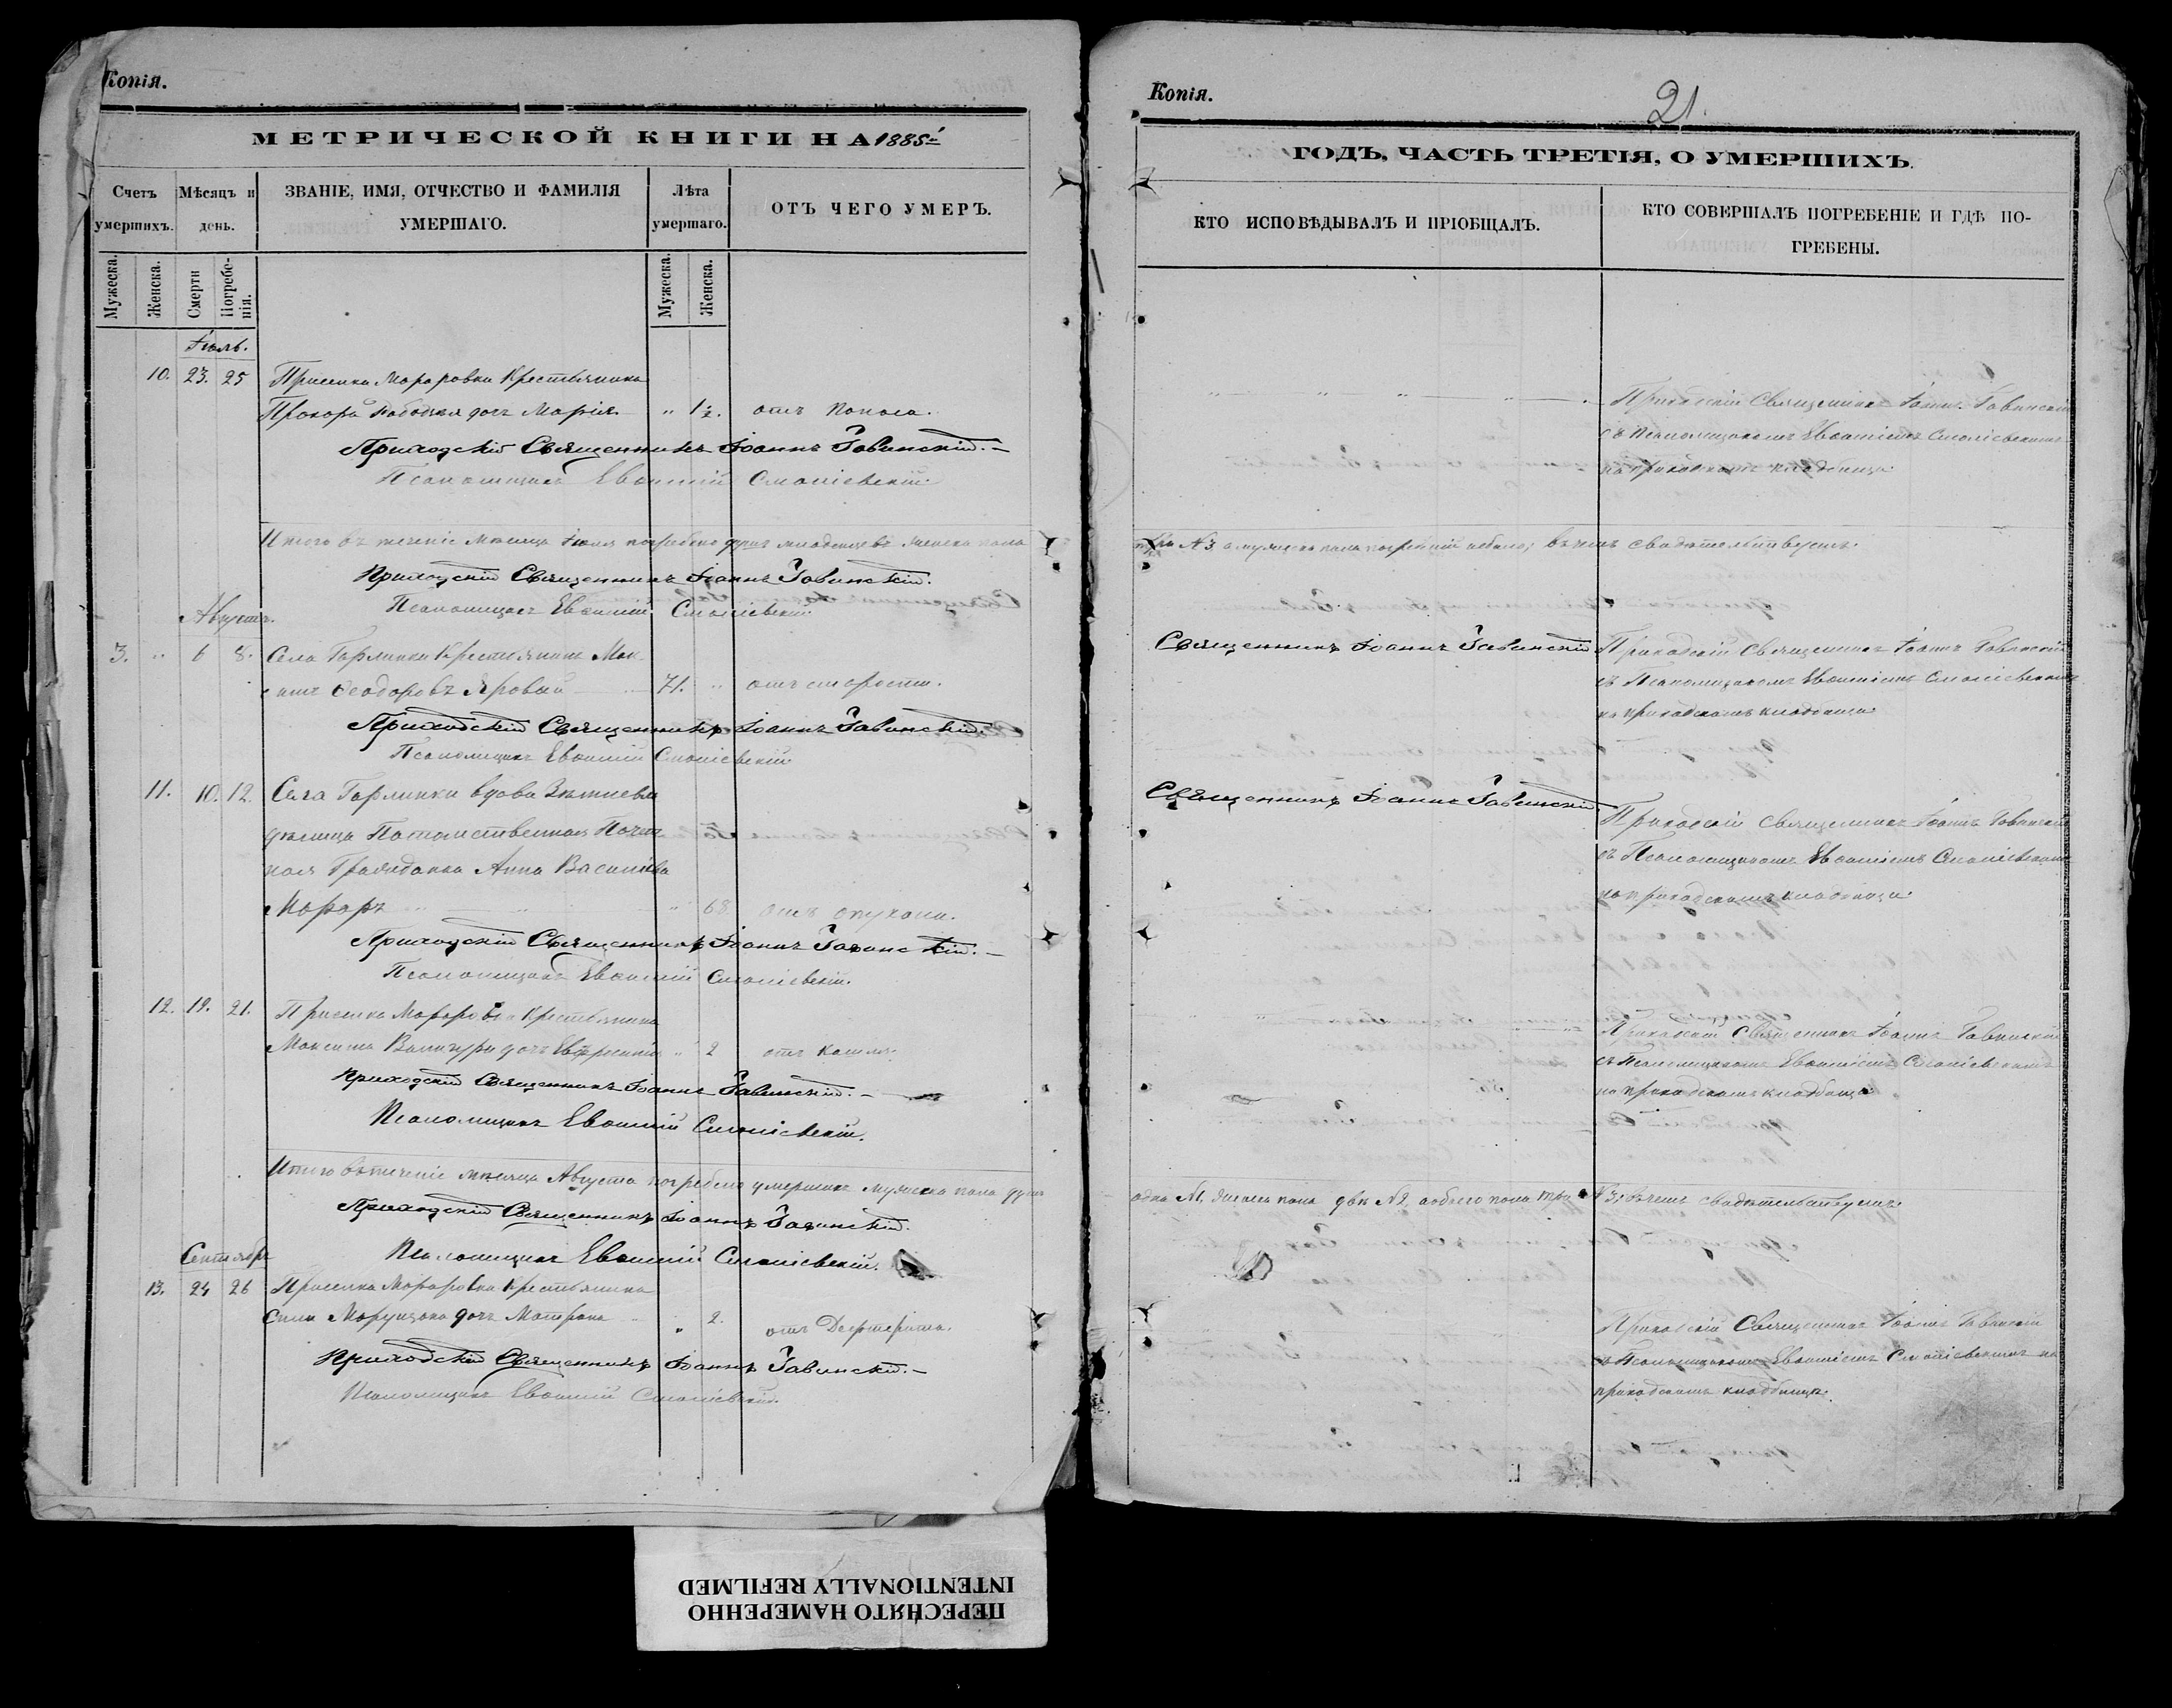 Копія.
МЕТРИЧЕСКОЙ КНИГИ НА 1885й
Счетъ умершихъ.
Мѣсяцъ и день.
ЗВАНІЕ, ИМЯ, ОТЧЕСТВО И ФАМИЛІЯ
УМЕРШАГО.
Лѣта умершаго.
ОТЪ ЧЕГО УМЕРЪ.
Мужеска.
Женска.
Смерти
Погребенія.
Мужеска.
Женска.
Іюль.
10. 23. 25 Приселка Мораровки Крестьянина
Прокора дочь Марія " 1½. отъ поноса.
Приходскій Священникъ Іоаннъ Гавинскій.
Псаломщикъ Евѳимій Смолієвскій
Итого въ теченіе мѣсяца Іюля погребено душъ младенцевъ женска пола
Приходскій Священникъ Іоаннъ Гавинскій.
Псаломщикъ Евѳимій Смолієвскій
Августъ.
3. " 6 8. Села Гарлинки Крестьянинъ
Ѳеодоровъ Яровый 71. " отъ старости.
Приходскій Священникъ Іоаннъ Гавинскій.
Псаломщикъ Евѳимій Смолієвскій
11. 10. 12. Села Гарлинки вдова
Потомственная Почет-
ная Гражданка Анна Василіева
Мораръ " 68 отъ опухоли.
Приходскій Священникъ Іоаннъ Гавинскій.
Псаломщикъ Евѳимій Смолієвскій.
12. 19. 21. Приселка Мораровки Крестьянина
Максима дочь " 2 отъ кашля.
Приходскій Священникъ Іоаннъ Гавинскій.
Псаломщикъ Евѳимій Смолієвскій.
Итого въ теченіе мѣсяца Августа погребено умершихъ мужеска пола душъ
Приходскій Священникъ Іоаннъ Гавинскій.
Псаломщикъ Евѳимій Смолієвскій.
Сентябрь
13. 24 26 Приселка Мораровки Крестьянина
дочь Матрона " 2. отъ Дифтерита.
Приходскій Священникъ Іоаннъ Гавинскій.
Псаломщикъ Евѳимій Смолієвскій.
Копія.
21.
ГОДЪ, ЧАСТЬ ТРЕТІЯ, О УМЕРШИХЪ.
КТО ИСПОВѢДЫВАЛЪ И ПРІОБЩАЛЪ.
КТО СОВЕРШАЛЪ ПОГРЕБЕНІЕ И ГДѢ ПО-
ГРЕБЕНЫ.
Приходскій Священникъ Іоаннъ Гавинскій
съ Псаломщикомъ Евѳиміемъ Смолієвскимъ
на приходскомъ кладбищѣ
№ 3, а мужеска пола погребеній небыло; въ чемъ свидѣтельствуемъ.
Священникъ Іоаннъ Гавинскій
Приходскій Священникъ Іоаннъ Гавинскій
съ Псаломщикомъ Евѳиміемъ Смолієвскимъ
на приходскомъ кладбищѣ
Священникъ Іоаннъ Гавинскій
Приходскій Священникъ Іоаннъ Гавинскій
съ Псаломщикомъ Евѳиміемъ Смолієвскимъ
на приходскомъ кладбищѣ
Приходскій Священникъ Іоаннъ Гавинскій
съ Псаломщикомъ Евѳиміемъ Смолієвскимъ
на приходскомъ кладбищѣ
одна №1, женска пола двѣ №2, а обоего пола три №3; въ чемъ свидѣтельствуемъ
Приходскій Священникъ Іоаннъ Гавинскій
съ Псаломщикомъ Евѳиміемъ Смолієвскимъ на
приходскомъ кладбищѣ.
ПЕРЕСНЯТО НАМЕРЕННО
INTENTIONALLY REFILMED